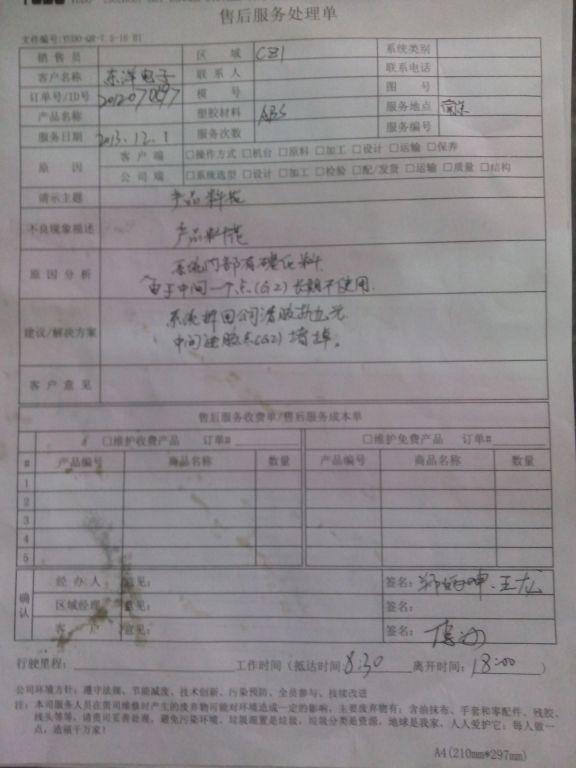 售后服务处理单
文件编号:YUDO-QR-7.5-16 B1
销售员 区域 CZ1 系统类别
客户名称 东洋电子 联系人 联系电话
订单号/ID号 模号 图号
产品名称 塑胶材料 ABS 服务地点
服务日期 2013.12.1 服务次数 服务编号
原因 客户端 □操作方式 □机台 □原料 □加工 □设计 □运输 □保养
公司端 □系统选型 □设计 □加工 □检验 □配/发货 □运输 □质量 □结构
请示主题 产品料花
不良现象描述 产品料花
原因分析 系统内部有碳化料
由于中间一个点(G2)长期不使用.
建议/解决方案 系统拆回公司清胶
中间进胶点(G2)堵掉。
客户意见
售后服务收费单/售后服务成本单
□维护收费产品 订单# □维护免费产品 订单#
# 产品编号 商品名称 数量 产品编号 商品名称 数量
1
2
3
4
5
确认 经办人 意见: 签名: 王龙
区域经理 意见: 签名:
客户 意见: 签名:
行驶里程: 工作时间(抵达时间 8:30 离开时间: 18:00
公司环境方针: 遵守法规、节能减废、技术创新、污染预防、全员参与、持续改进
注: 本司服务人员在贵司维修时产生的废弃物可能对环境造成一定的影响, 主要废弃物有: 含油抹布、手套和零配件、残胶、
线头等等, 请贵司妥善处理, 避免污染环境, 垃圾混置是垃圾, 垃圾分类是资源, 地球是我家, 人人爱护它; 每人做一
点, 造福千万家!
A4(210mm*297mm)